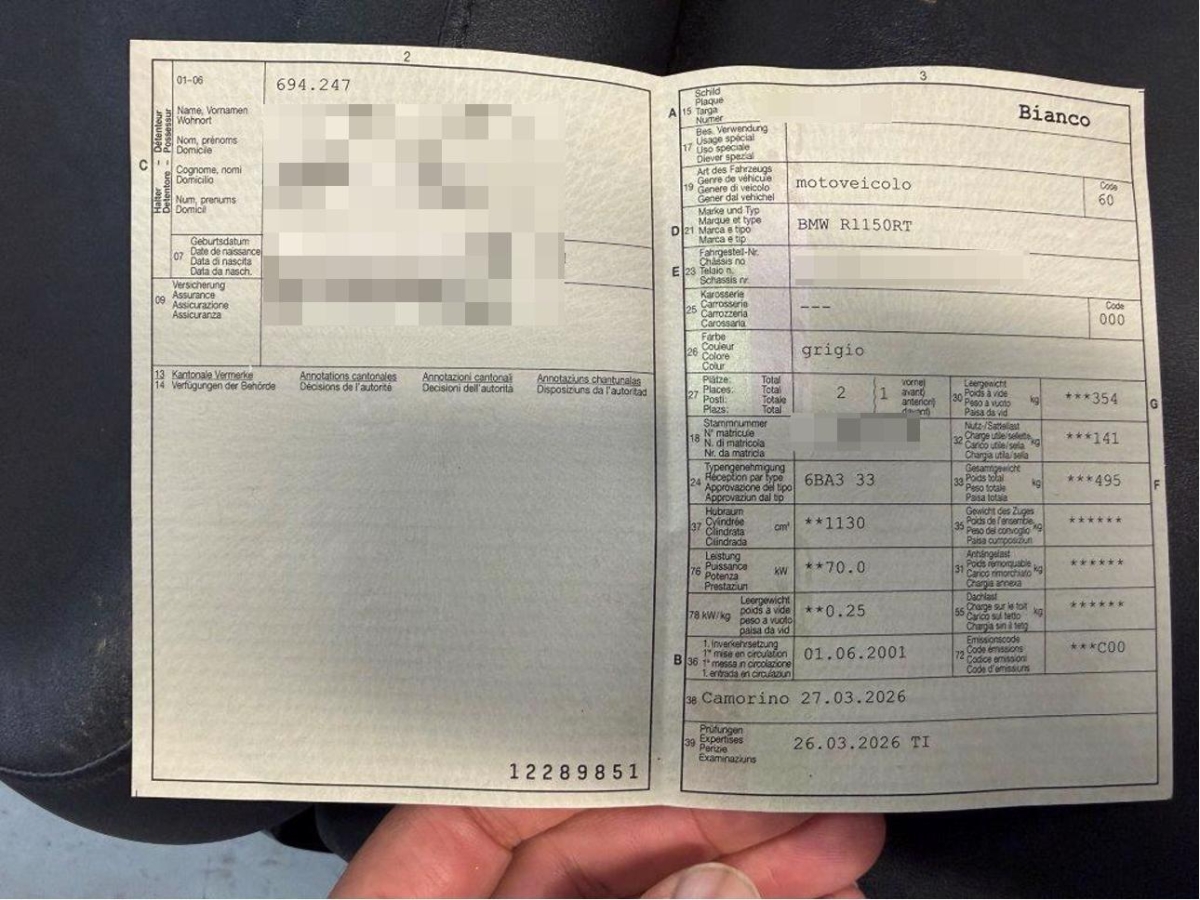 2
01-06
694.247
Halter – Détenteur
Detentore – Possessur
C
Name, Vornamen
Wohnort
Nom, prénoms
Domicile
Cognome, nomi
Domicilio
Num, prenums
Domicil
07
Geburtsdatum
Date de naissance
Data di nascita
Data da nasch.
09
Versicherung
Assurance
Assicurazione
Assicuranza
13 Kantonale Vermerke Annotations cantonales Annotazioni cantonali Annotaziuns chantunalas
14 Verfügungen der Behörde Décisions de l'autorité Decisioni dell'autorità Disposiziuns da l'autoritad
12289851
3
A 15
Schild
Plaque
Targa
Numer
Bianco
17
Bes. Verwendung
Usage spécial
Uso speciale
Diever spezial
19
Art des Fahrzeugs
Genre de véhicule
Genere di veicolo
Gener dal vehichel
motoveicolo
Code
60
D 21
Marke und Typ
Marque et type
Marca e tipo
Marca e tip
BMW R1150RT
E 23
Fahrgestell-Nr.
Châssis no
Telaio n.
Schassis nr.
25
Karosserie
Carrosserie
Carrozzeria
Carossaria
---
Code
000
26
Farbe
Couleur
Colore
Colur
grigio
27
Plätze: Total
Places: Total
Posti: Totale
Plazs: Total
2 { 1
vorne)
avant)
anteriori)
davant)
30
Leergewicht
Poids à vide
Peso a vuoto
Paisa da vid
kg
***354
G
18
Stammnummer
N° matricule
N. di matricola
Nr. da matricla
32
Nutz-/Sattellast
Charge utile/sellette
Carico utile/sella
Chargia utila/sella
kg
***141
24
Typengenehmigung
Réception par type
Approvazione del tipo
Approvaziun dal tip
6BA3 33
33
Gesamtgewicht
Poids total
Peso totale
Paisa totala
kg
***495
F
37
Hubraum
Cylindrée
Cilindrata
Cilindrada
cm³
**1130
35
Gewicht des Zuges
Poids de l'ensemble
Peso del convoglio
Paisa cumposiziun
kg
******
76
Leistung
Puissance
Potenza
Prestaziun
kW
**70.0
31
Anhängelast
Poids remorquable
Carico rimorchiato
Chargia annexa
kg
******
78 kW/kg
Leergewicht
poids à vide
peso a vuoto
paisa da vid
**0.25
55
Dachlast
Charge sur le toit
Carico sul tetto
Chargia sin il tetg
kg
******
B 36
1. Inverkehrsetzung
1re mise en circulation
1a messa in circolazione
1. entrada en circulaziun
01.06.2001
72
Emissionscode
Code émissions
Codice emissioni
Code d'emissiuns
***C00
38 Camorino 27.03.2026
39
Prüfungen
Expertises
Perizie
Examinaziuns
26.03.2026 TI